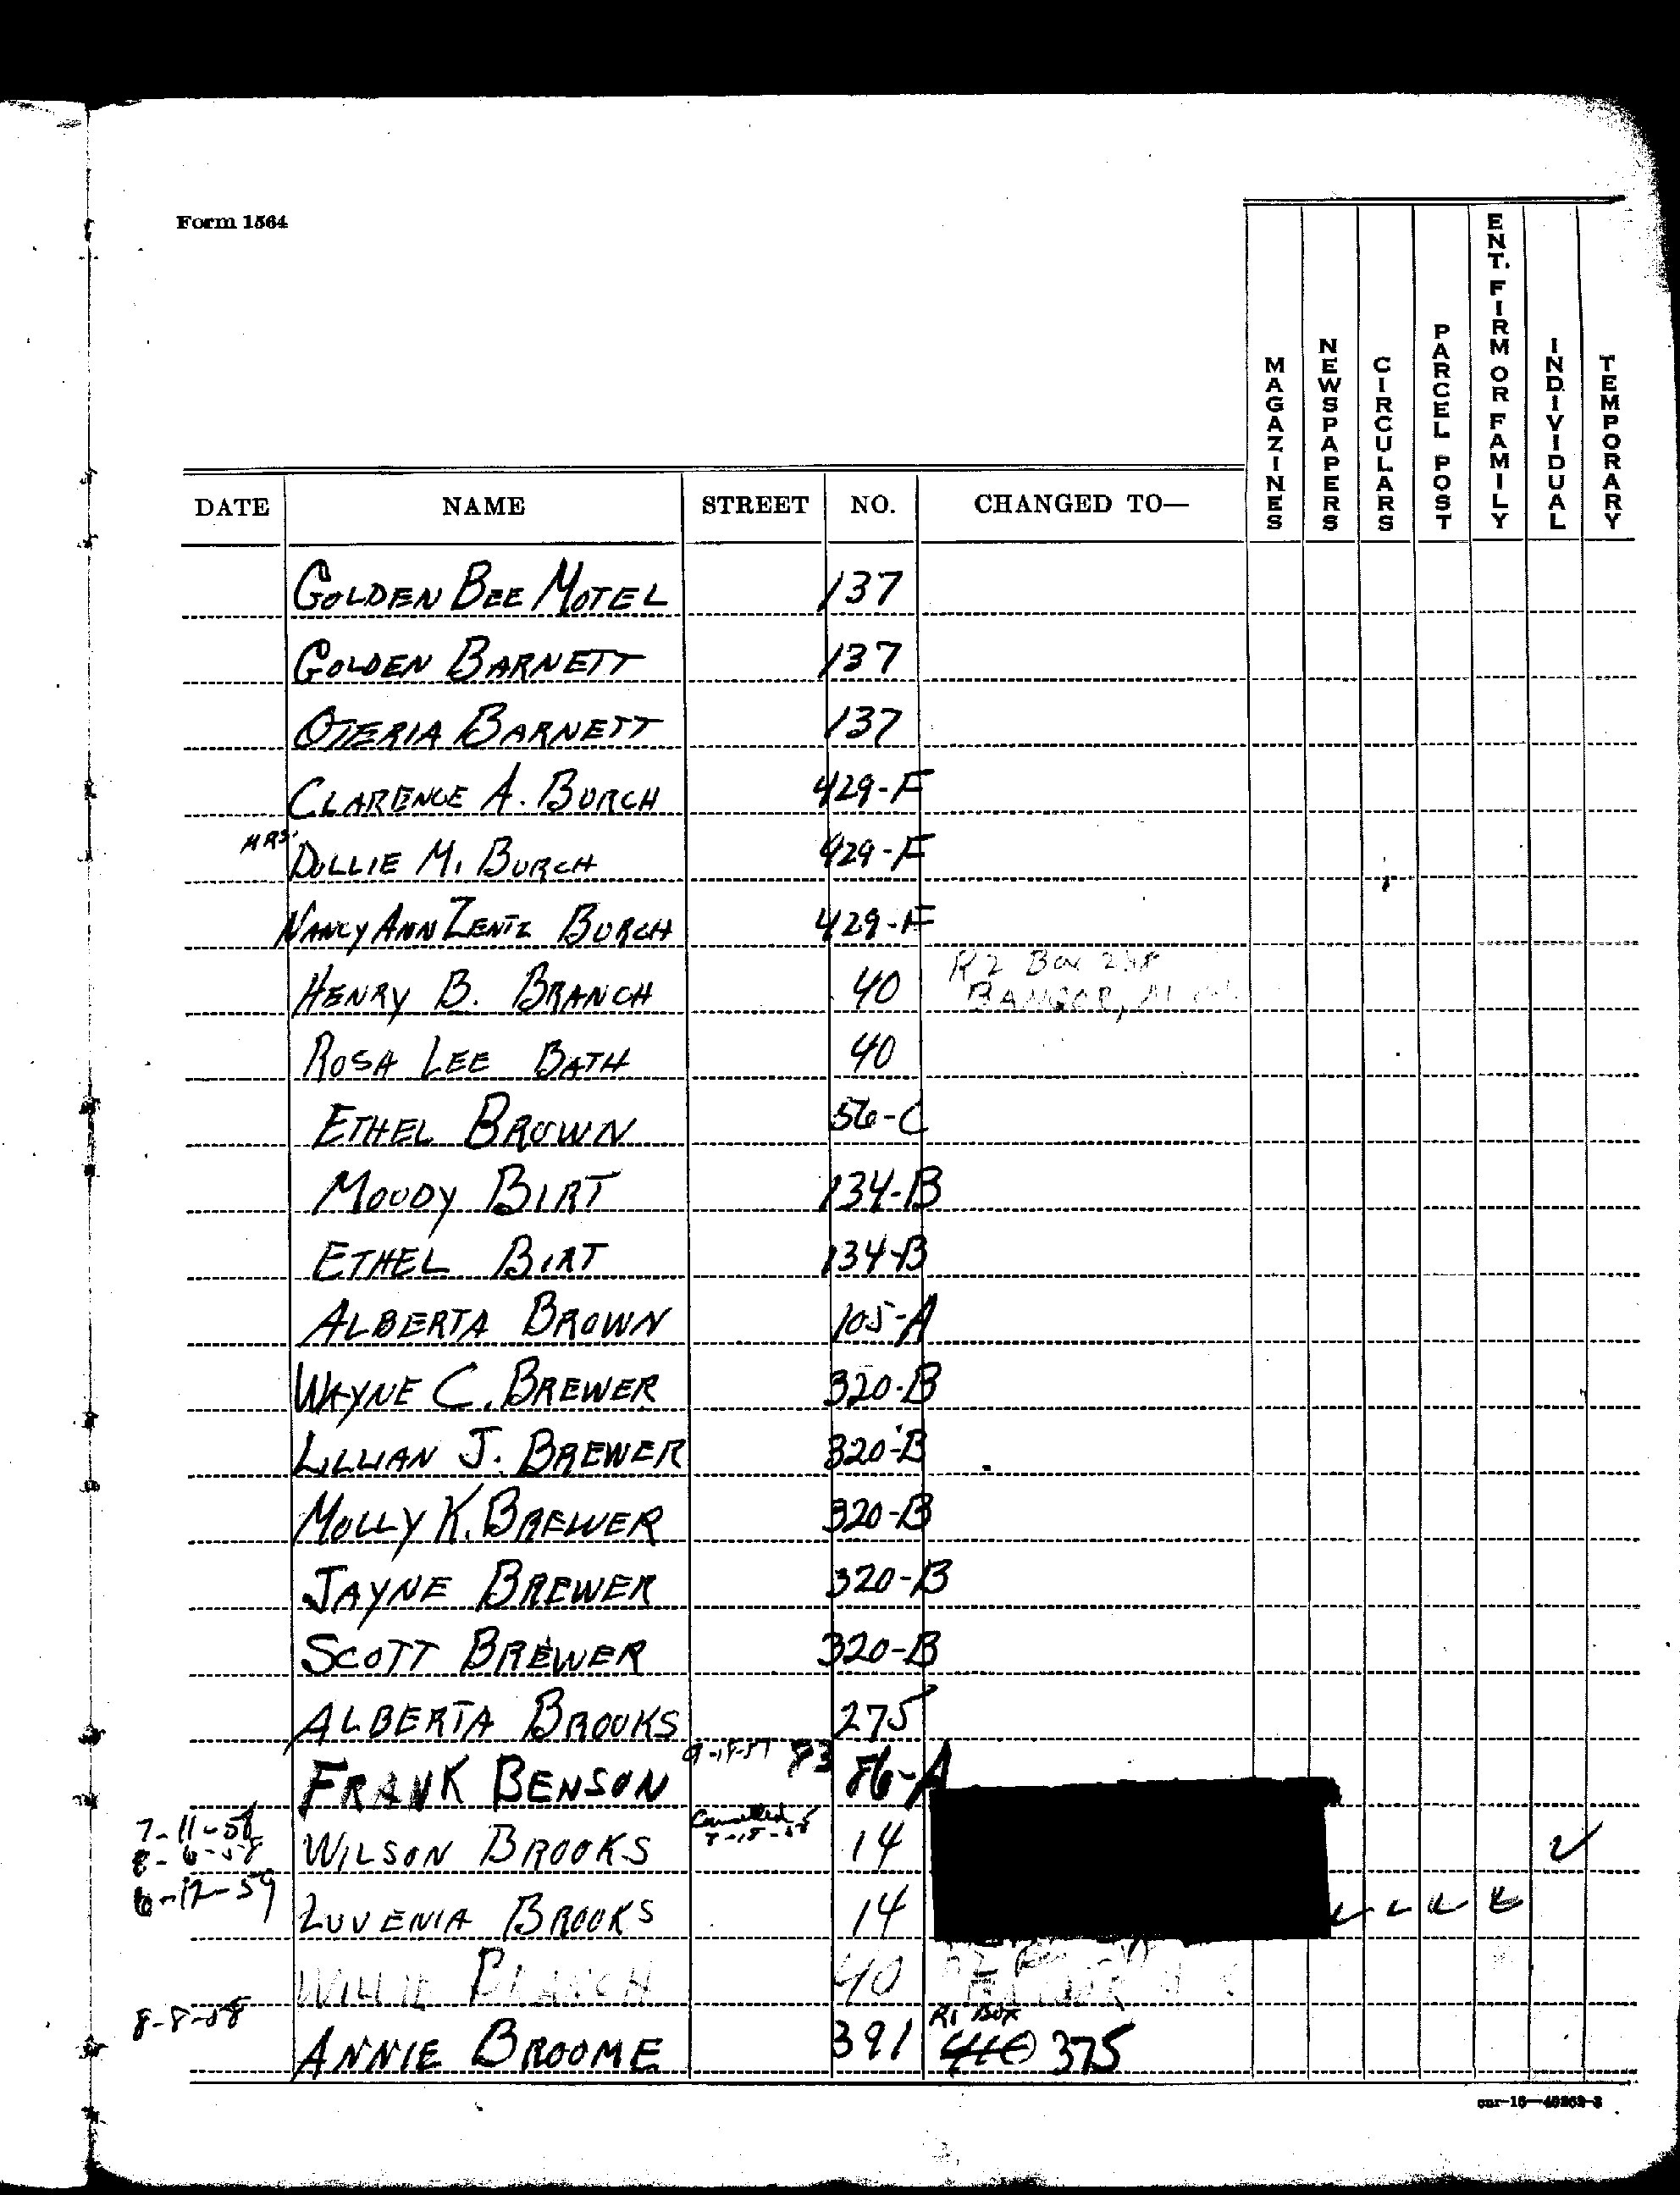 Form 1564
DATE NAME STREET NO. CHANGED TO— MAGAZINES NEWSPAPERS CIRCULARS PARCEL POST ENT. FIRM OR FAMILY INDIVIDUAL TEMPORARY
GOLDEN BEE MOTEL 137
GOLDEN BARNETT 137
OTERIA BARNETT 137
CLARENCE A. BURCH 429-F
MRS. DOLLIE M. BURCH 429-F
NANCY ANN ZENTZ BURCH 429-F
HENRY B. BRANCH 40 R2 Box
BANGOR,
ROSA LEE BATH 40
ETHEL BROWN 56-C
MOODY BIRT 134-B
ETHEL BIRT 134-B
ALBERTA BROWN 105-A
WAYNE C. BREWER 320-B
LILLIAN J. BREWER 320-B
MOLLY K. BREWER 320-B
JAYNE BREWER 320-B
SCOTT BREWER 320-B
ALBERTA BROOKS 275
FRANK BENSON 83 86-A
7-11-58 Cancelled
8-6-58 WILSON BROOKS 14 ✓
6-12-59 LUVENIA BROOKS 14 ✓ ✓ ✓ ✓
WILLIE BRANCH 40
8-8-58 R1 BOX
ANNIE BROOME 391 410 375